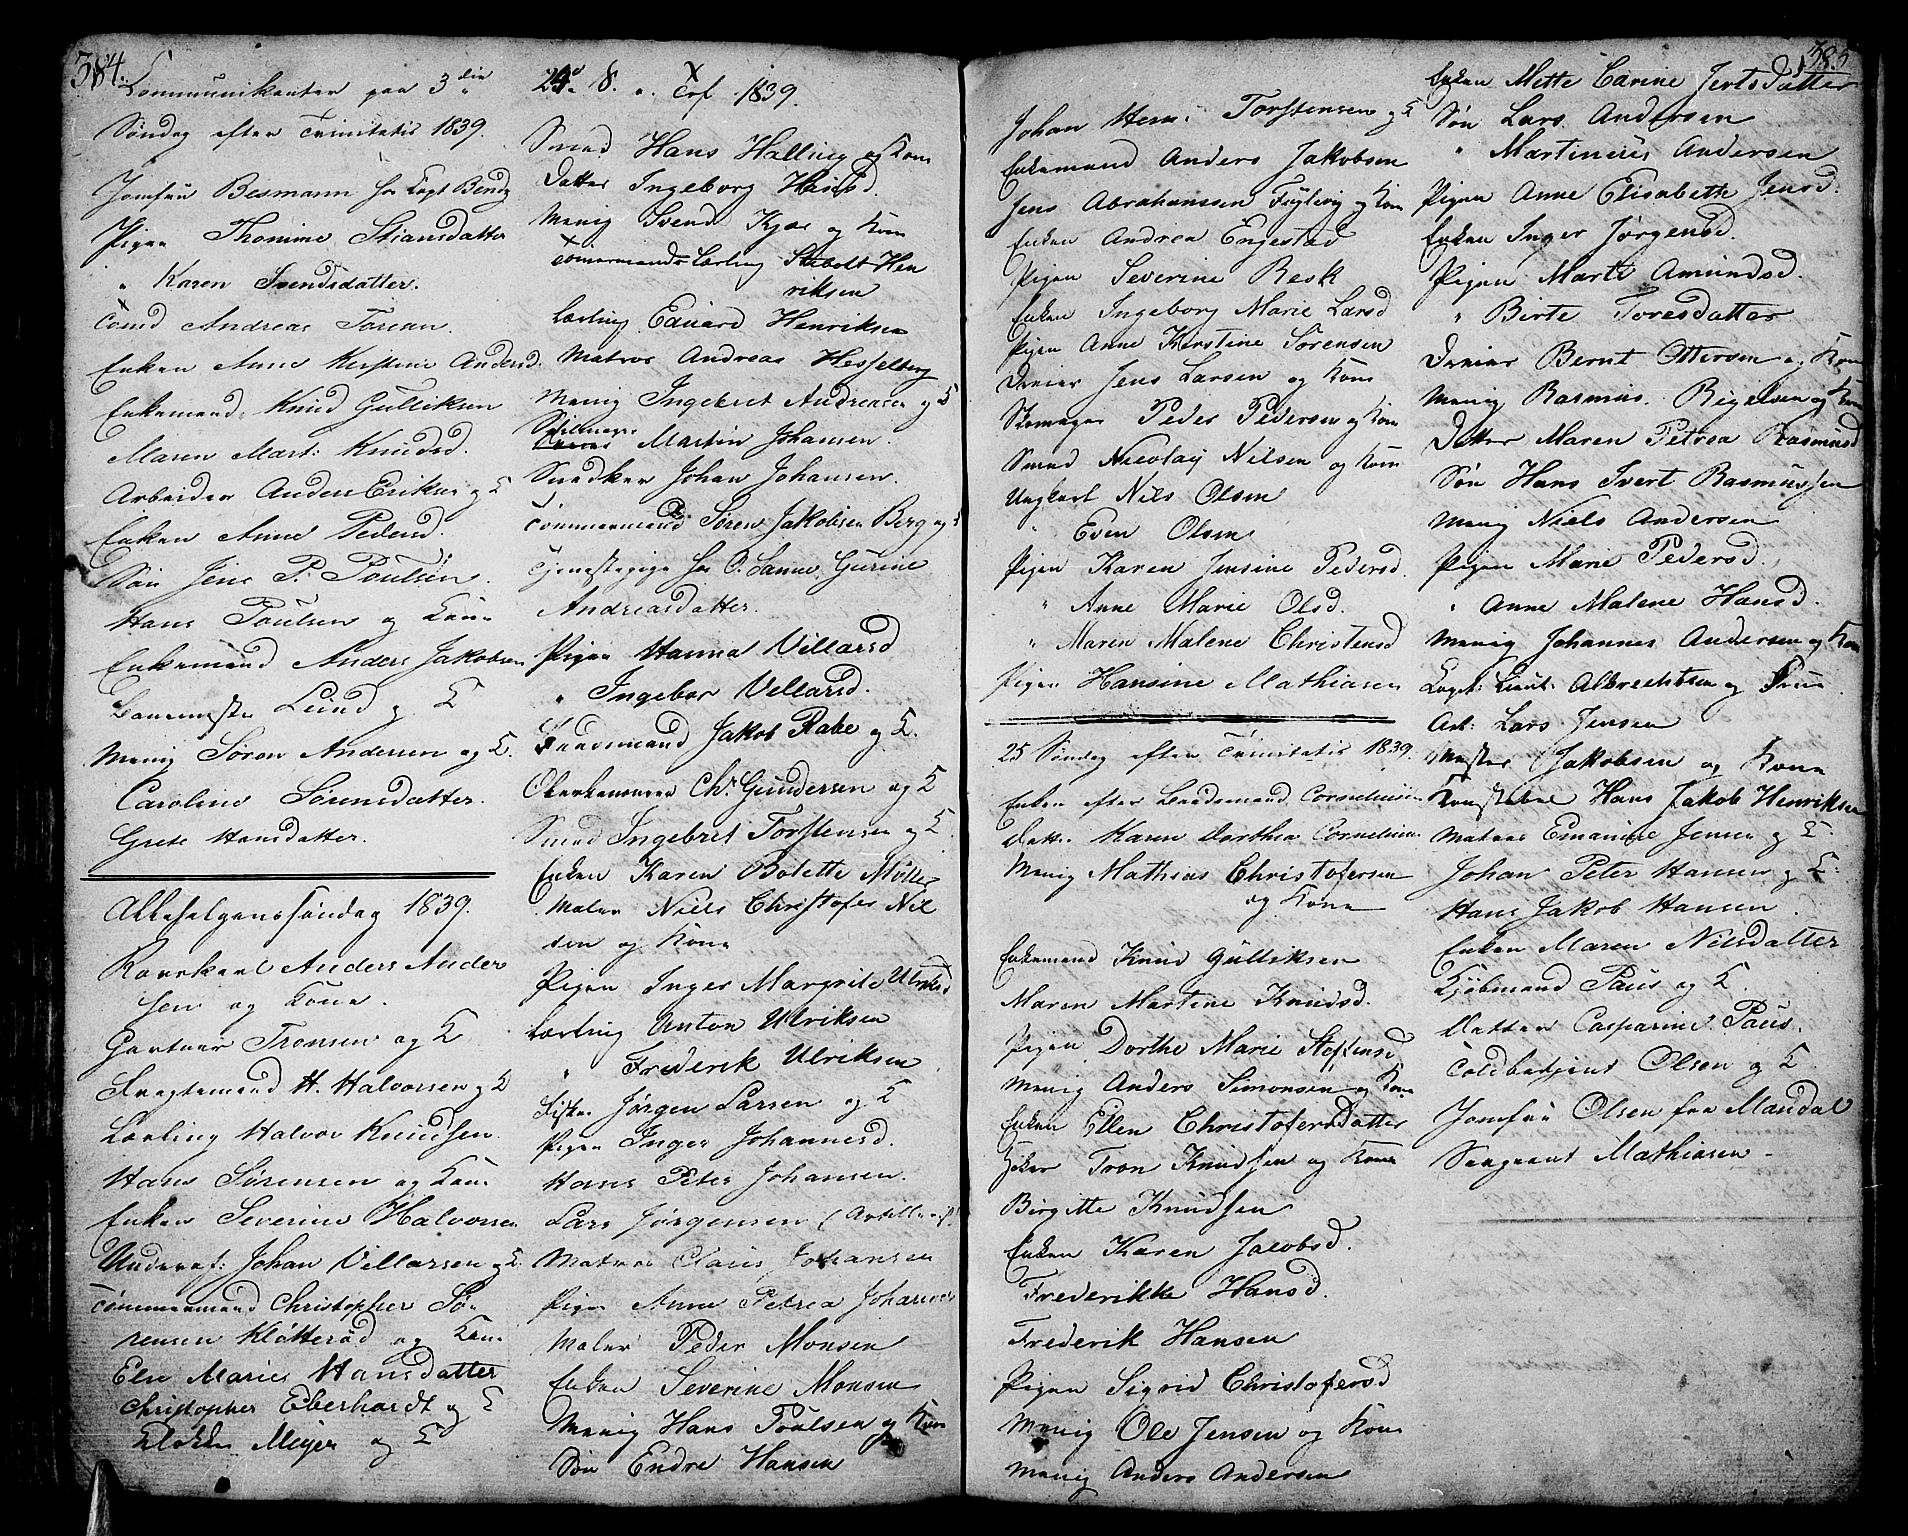 384.
Communikanter paa 3die
Søndag efter Trinitatis 1839.
Jomfru Besmann hos Capt Bentz
Pigen Thomine Stiansdatter
" Karen Svendsdatter.
Andreas
Enken Anne Kirstine Andersd.
Enkemand Knud Gulliksen
Maren Mart: Knudsd.
Arbeider Anders Eriksen og K
Enken Anne Pedersd.
Søn Jens P. Poulsen.
Hans Poulsen og Kone
Enkemand Anders Jakobsen
Lund og K
Menig Søren Andersen og K.
Caroline Sørensdatter.
Grete Hansdatter.
Allehelgenssøndag 1839.
Anders Ander
sen og Kone.
Gartner Tronsen og K
Fragtemand H. Halvorsen og K
Lærling Halvor Knudsen.
Hans Sørensen og Kone
Enken Severine Halvorsen
Underof: Johan Villarsen og K.
Tømmermand Christopher Sø-
rensen Klötterød og Kone
Else Marie Hansdatter
Christopher Eberhardt og K
Klokker Meyer og K
24de S. e. Tref 1839.
Smed Hans Halling og Kone
Datter Ingeborg Hansd.
Menig Svend Kjær og Kone
Tømermands Lærling Sibolt Hen
riksen
Lærling Eduard Henriksen
Matros Andreas Hesselberg
Menig Ingebret Andreasen og K
Martin Johansen.
Snedker Johan Johansen.
Tømmermand Søren Jakobsen Berg og K
Tjenestepige hos O. Sanne, Gurine
Andreasdatter.
Pigen Hanna Villarsd
" Ingebor Villarsd.
Jakob Rabe og K.
Chr. Gundersen og K
Smed Ingebret Torstensen og K.
Enken Karen Bolette Møller
Maler Niels Christofer Nil
sen og Kone
Pigen Inger Margrete Ulriksd
Lærling Anton Ulriksen
" Frederik Ulriksen
Fisker Jørgen Larsen og K
Pigen Inger Johannesd.
Hans Peter Johansen.
Lars Jørgensen
Matros Claus Johansen
Pigen Anne Petrea Johannes
Maler Peder Monsen
Enken Severine Monsen
Menig Hans Poulsen og Kone
Søn Endre Hansen
385
Johan Hen: Torstensen og K
Enkemand Anders Jakobsen
Jens Abrahamsen Fuglevig og Kone
Enken Andrea Engestad
Pigen Severine Resk
Enken Ingeborg Marie Larsd
Pigen Anne Kirstine Sørensen
Dreier Jens Larsen og Kone
Skomager Peder Pedersen og Kone
Smed Nicolay Nilsen og Kone
Ungkarl Nils Olsen
" Even Olsen
Pigen Karen Jensine Pedersd.
" Anne Marie Olsd.
" Maren Malene Christensd
Pigen Hansine Mathiasen
25 Søndag efter Trinitatis 1839.
Enken efter Corneliusen
Datter Karen Dorthea Corneliusen
Menig Mathias Christofersen
og Kone
Enkemand Knud Gulliksen
Maren Martine Knudsd.
Pigen Dorthe Marie Stoffensd
Menig Anders Simonsen og Kone
Enken Ellen Christofersdatter
Tron Knudsen og Kone
Birgitte Knudsen
Enken Karen Jacobsd.
Frederikke Hansd.
Frederik Hansen
Pigen Sigrid Christofersd
Menig Ole Jensen og Kone
Menig Anders Andersen
Enken Mette Carine Jertsdatter
Søn Lars Andersen
" Martinius Andersen
Pigen Anne Elisabeth Jensd.
Enken Inger Jörgensd.
Pigen Marte Amundsd.
" Birte Toresdatter
Dreier Bernt Ottersen og Kone
Menig Rasmus Bigelsen og Kone
Datter Maren Petrea Rasmusd
Søn Hans Ivert Rasmussen
Menig Niels Andersen
Pigen Marie Pedersd.
" Anne Malene Hansd.
Menig Johannes Andersen og Kone
Capt: Lieut: Albrechtsen og Frue
Art: Lars Jensen
Mester Jakobsen og Kone
Hans Jakob Henriksen
Matros Jensen og K.
Johan Peter Hansen og K.
Hans Jakob Hansen.
Enken Maren Nilsdatter
Kjøbmand Paus og K.
Datter Casparine Paus.
Toldbetjent Olsen og K.
Jomfru Olsen fra Mandal
Sergeant Mathiasen -